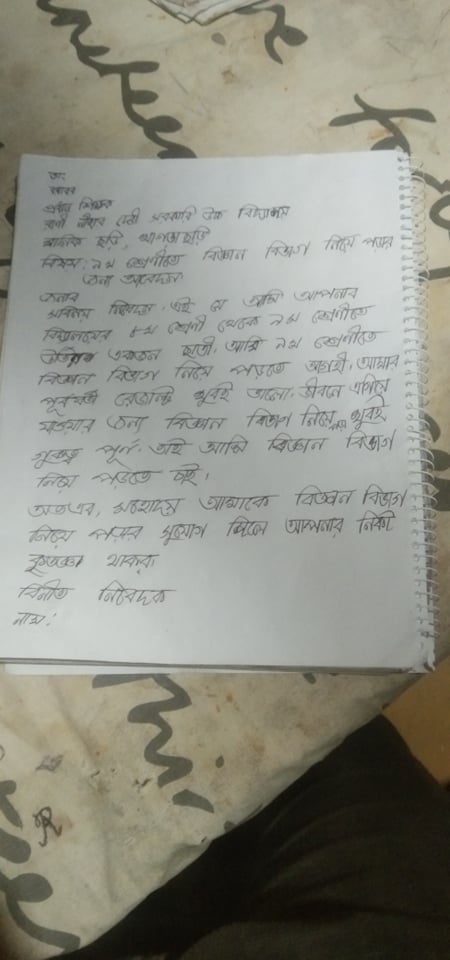 তাং
বরাবর
প্রধান শিক্ষক
রাণী নীহার দেবী সরকারি উচ্চ বিদ্যালয়
মানিক ছড়ি, খাগড়াছড়ি
বিষয়: ৯ম শ্রেণীতে বিজ্ঞান বিভাগ নিয়ে পড়ার
জন্য আবেদন।
জনাব
সবিনয় নিবেদন, এই যে আমি আপনার
বিদ্যালয়ের ৮ম শ্রেণী থেকে ৯ম শ্রেণীতে
একজন ছাত্রী, আমি ৯ম শ্রেণীতে
বিজ্ঞান বিভাগ নিয়ে পড়তে আগ্রহী, আমার
পূর্ববর্তী রেজাল্ট খুবই ভালো, জীবনে এগিয়ে
যাওয়ার জন্য বিজ্ঞান বিভাগ নিয়ে পড়া খুবই
গুরুত্ব পূর্ণ, তাই আমি বিজ্ঞান বিভাগ
নিয়ে পড়তে চাই।
অতএব, মহোদয় আমাকে বিজ্ঞান বিভাগ
নিয়ে পড়ার সুযোগ দিলে আপনার নিকট
কৃতজ্ঞ থাকব।
বিনীত নিবেদক
নাম: